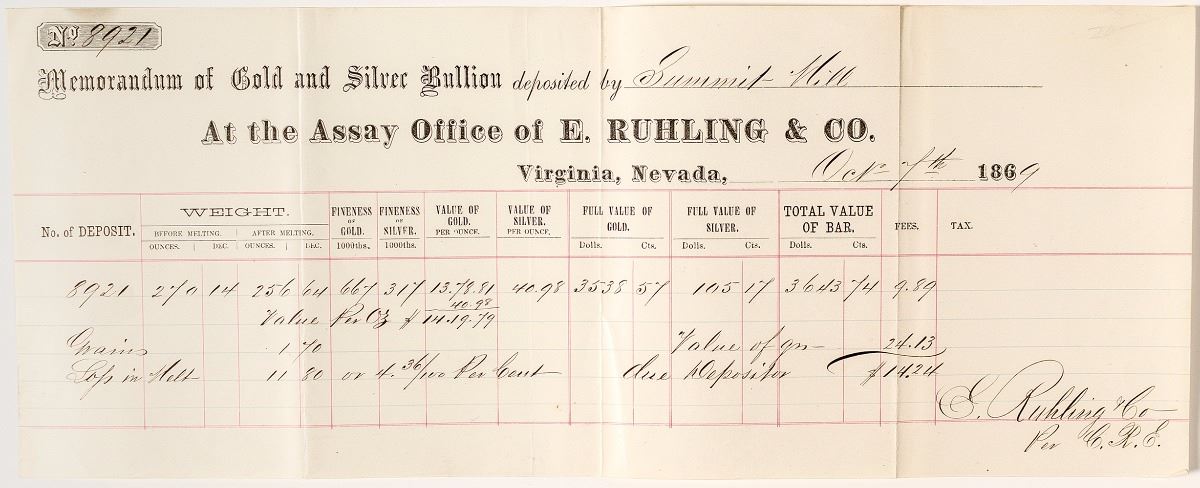 No 8921
Memorandum of Gold and Silver Bullion deposited by Summit Mill
At the Assay Office of E. RUHLING & CO.
Virginia, Nevada, Octr 7th 1869
No. of DEPOSIT. WEIGHT. BEFORE MELTING. OUNCES. DEC. AFTER MELTING. OUNCES. DEC. FINENESS OF GOLD. 1000ths. FINENESS OF SILVER. 1000ths. VALUE OF GOLD. PER OUNCE. VALUE OF SILVER. PER OUNCE. FULL VALUE OF GOLD. Dolls. Cts. FULL VALUE OF SILVER. Dolls. Cts. TOTAL VALUE OF BAR. Dolls. Cts. FEES. TAX.
8921 270 14 256 64 667 317 13.78.81 40.98 3538 57 105 17 3643 74 9.89
40.98
Value Per Oz $ 14.19.79
Grains 1 70 Value of grs 24.13
Loss in Melt 11 80 or 4.36/100 Per Cent due Depositor $14.24
E. Ruhling & Co
Per C. R. E.